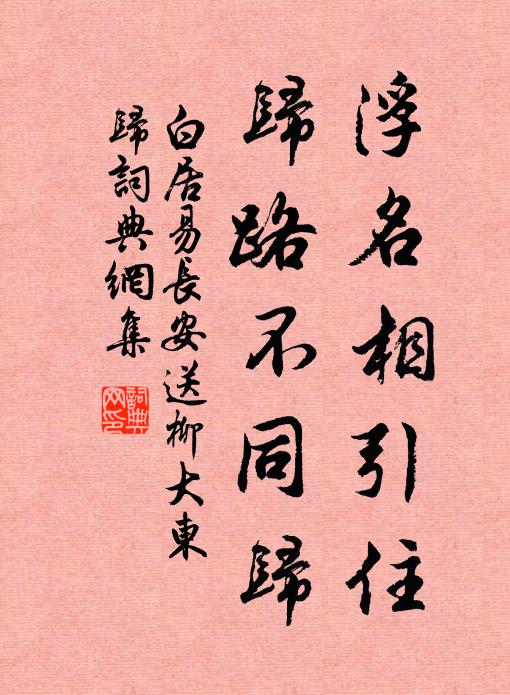 浮名相引住
歸路不同歸
白居易長安送柳大東
歸詞典網集
詞典
网印